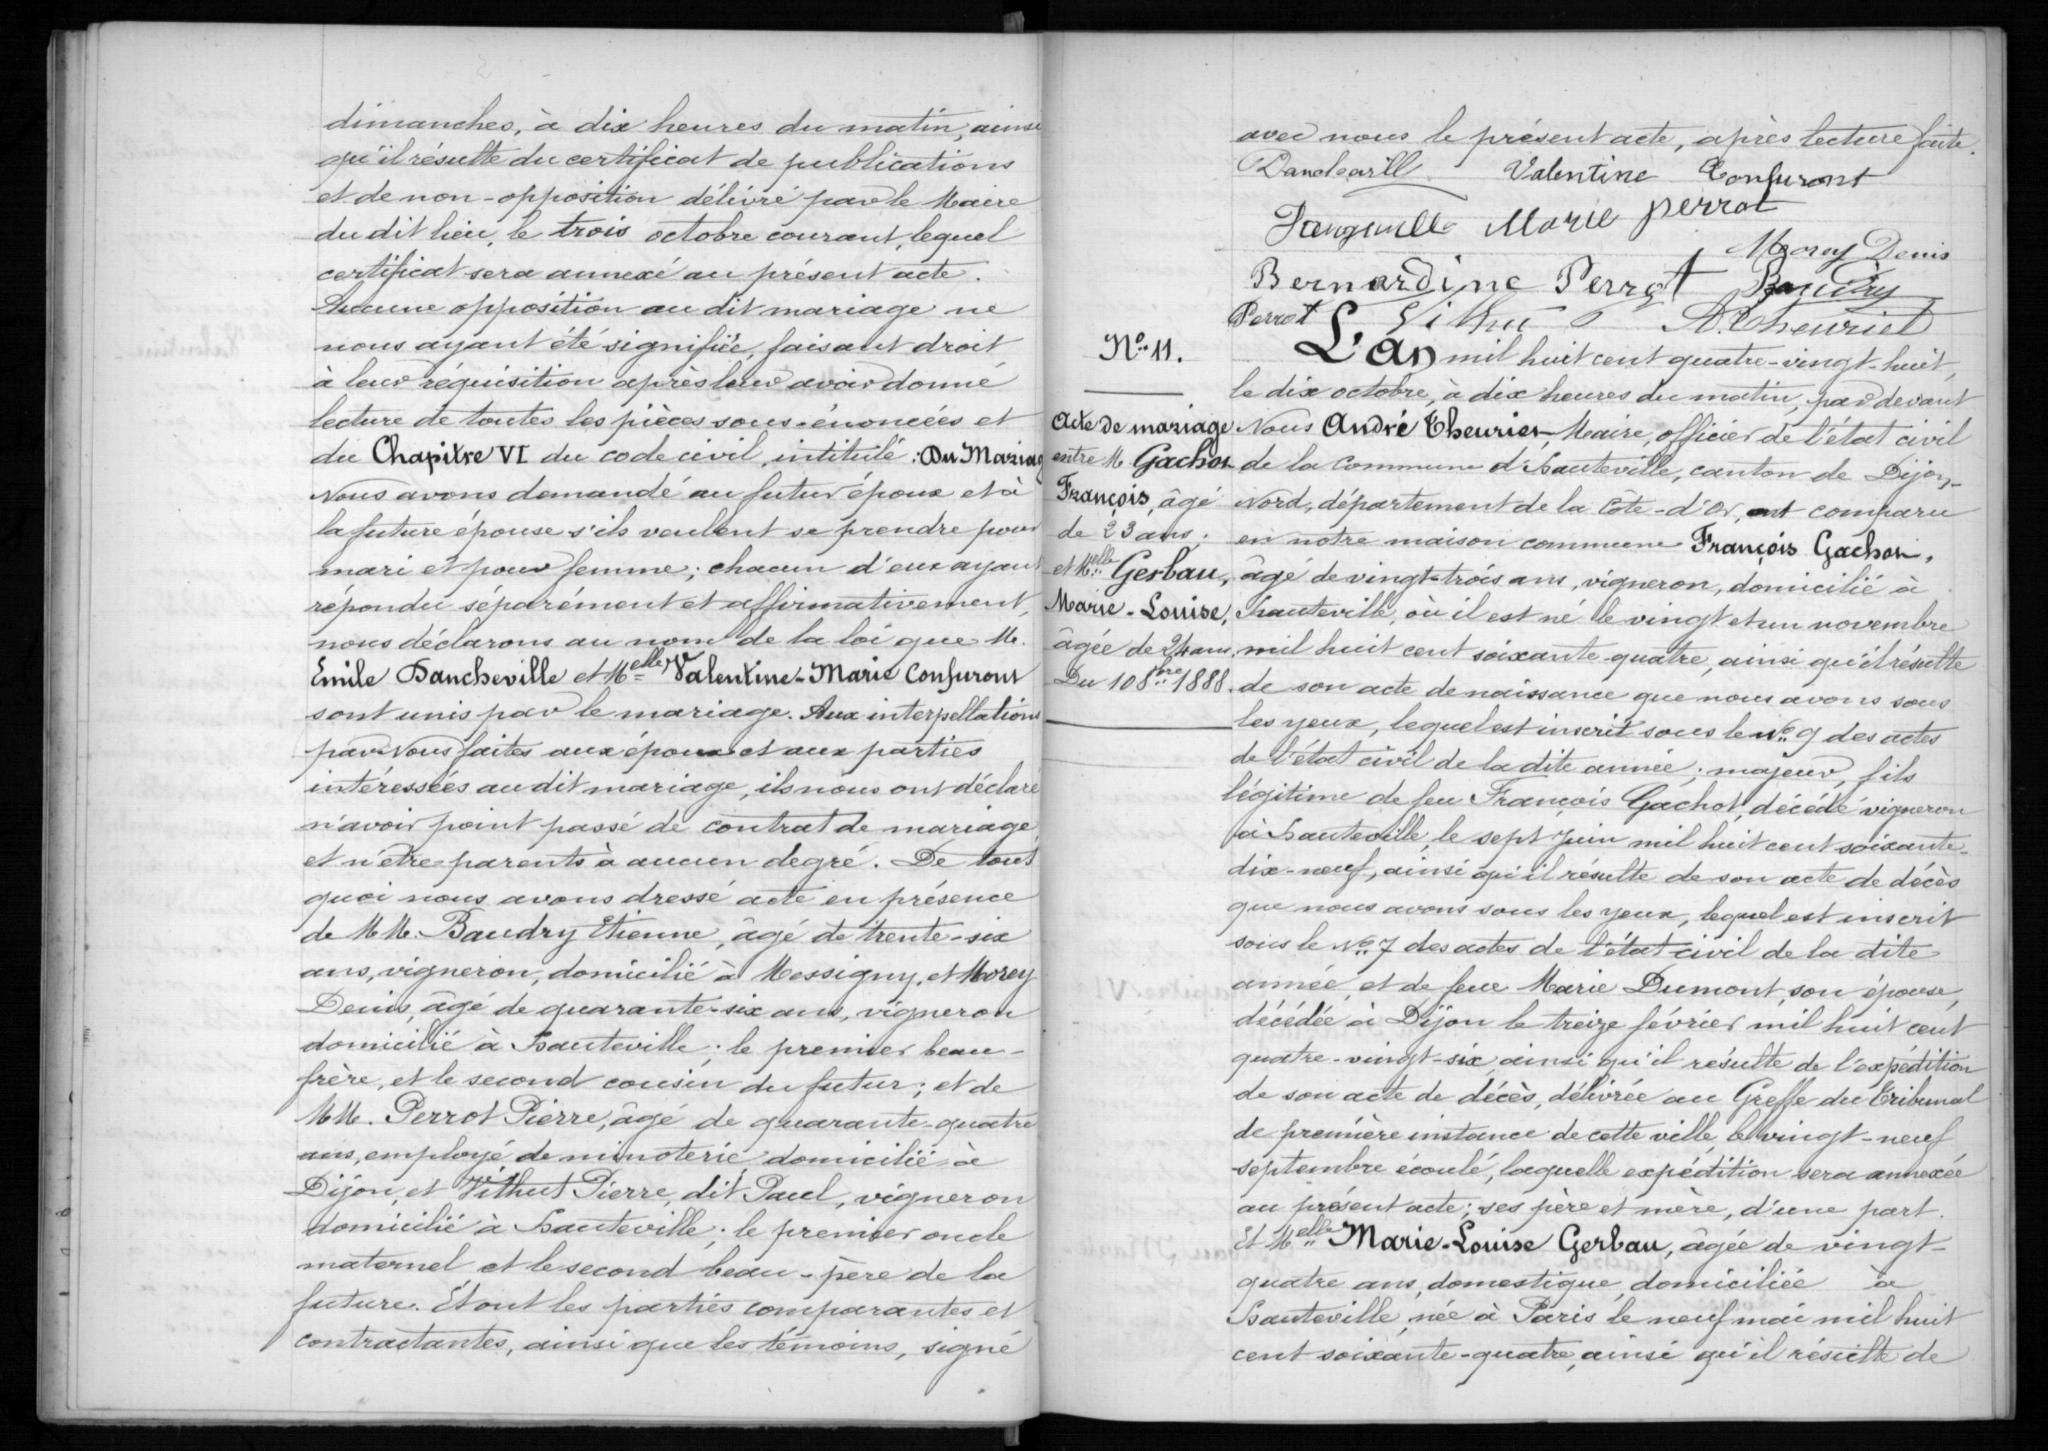 dimanches, à dix heures du matin, ainsi
qu'il résulte du certificat de publications
et de non-opposition délivré par le Maire
du dit lieu, le trois octobre courant, lequel
certificat sera annexé au présent acte.
Aucune opposition au dit mariage ne
nous ayant été signifiée, faisant droit
à leur réquisition après leur avoir donné
lecture de toutes les pièces sous-énoncées et
du Chapitre VI du code civil, intitulé: Du Mariag
Nous avons demandé au futur époux et à
la future épouse s'ils veulent se prendre pour
mari et pour femme; chacun d'eux ayant
répondu séparément et affirmativement,
nous déclarons au nom de la loi que M.
Emile Dancheville et Melle Valentine-Marie Confuront
sont unis par le mariage. Aux interpellations
par Nous faites aux époux et aux parties
intéressées au dit mariage, ils nous ont déclaré
n'avoir point passé de contrat de mariage,
et n'être parents à aucun degré. De tout
quoi nous avons dressé acte en présence
de MM. Baudry Etienne, âgé de trente-six
ans, vigneron, domicilié à Messigny, et Morey
Denis, âgé de quarante-six ans, vigneron
domicilié à Hauteville; le premier beau-
frère, et le second cousin du futur; et de
MM. Perrot Pierre, âgé de quarante-quatre
ans, employé de minoterie domicilié à
Dijon, et Vithut Pierre, dit Paul, vigneron
domicilié à Hauteville; le premier oncle
maternel et le second beau-père de la
future. Et ont les parties comparantes et
contractantes, ainsi que les témoins, signé
avec nous le présent acte, après lecture faite.
Valentine Confuront
Marie Perrot
Morey Denis
Bernardine Perrot Baudry
Perrot Vithu A. Theuriet
No 11.
Acte de mariage
entre M. Gachot
François, âgé
de 23 ans;
et Melle Gerbau,
Marie-Louise,
âgée de 24 ans
Du 10 8bre 1888.
L'an mil huit cent quatre-vingt-huit,
le dix octobre, à dix heures du matin, par devant
Nous André Theuriet, Maire, officier de l'état civil
de la commune d'Hauteville, canton de Dijon-
Nord, département de la Côte-d'Or, ont comparu
en notre maison commune François Gachot,
âgé de vingt-trois ans, vigneron, domicilié à
Hauteville, où il est né le vingt et un novembre
mil huit cent soixante-quatre, ainsi qu'il résulte
de son acte de naissance que nous avons sous
les yeux, lequel est inscrit sous le No 9 des actes
de l'état civil de la dite année; majeur, fils
légitime de feu François Gachot, décédé vigneron
à Hauteville, le sept Juin mil huit cent soixante-
dix-neuf, ainsi qu'il résulte de son acte de décès
que nous avons sous les yeux, lequel est inscrit
sous le No 7 des actes de l'état civil de la dite
année, et de feue Marie Dumont, son épouse,
décédée à Dijon le treize février mil huit cent
quatre-vingt-six, ainsi qu'il résulte de l'expédition
de son acte de décès, délivrée au Greffe du Tribunal
de première instance de cette ville, le vingt-neuf
septembre écoulé, laquelle expédition sera annexée
au présent acte; ses père et mère, d'une part.
Et Melle Marie-Louise Gerbau, âgée de vingt-
quatre ans, domestique, domiciliée à
Hauteville, née à Paris le neuf mai mil huit
cent soixante-quatre, ainsi qu'il résulte de